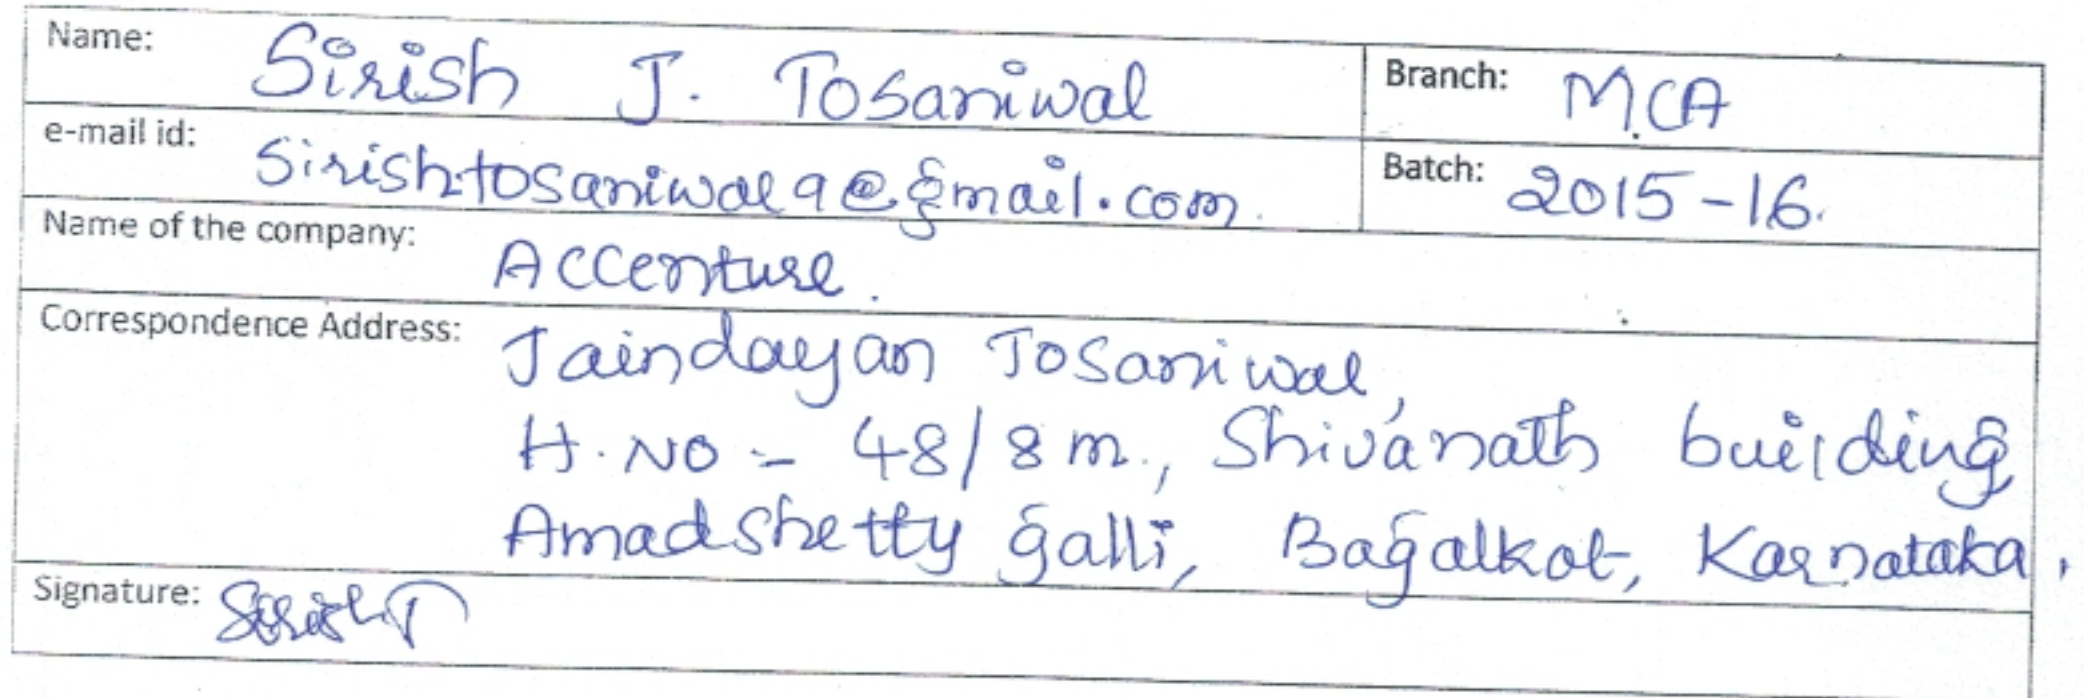 Name: Sirish J. Tosaniwal
Branch: MCA
e-mail id: Sirishtosaniwal9@gmail.com.
Batch: 2015-16.
Name of the company: Accenture.
Correspondence Address: Jaindayan Tosaniwal,
H.No:- 48/8m., Shivanath building
Amadshetty galli, Bagalkot, Karnataka,
Signature: Sirish T